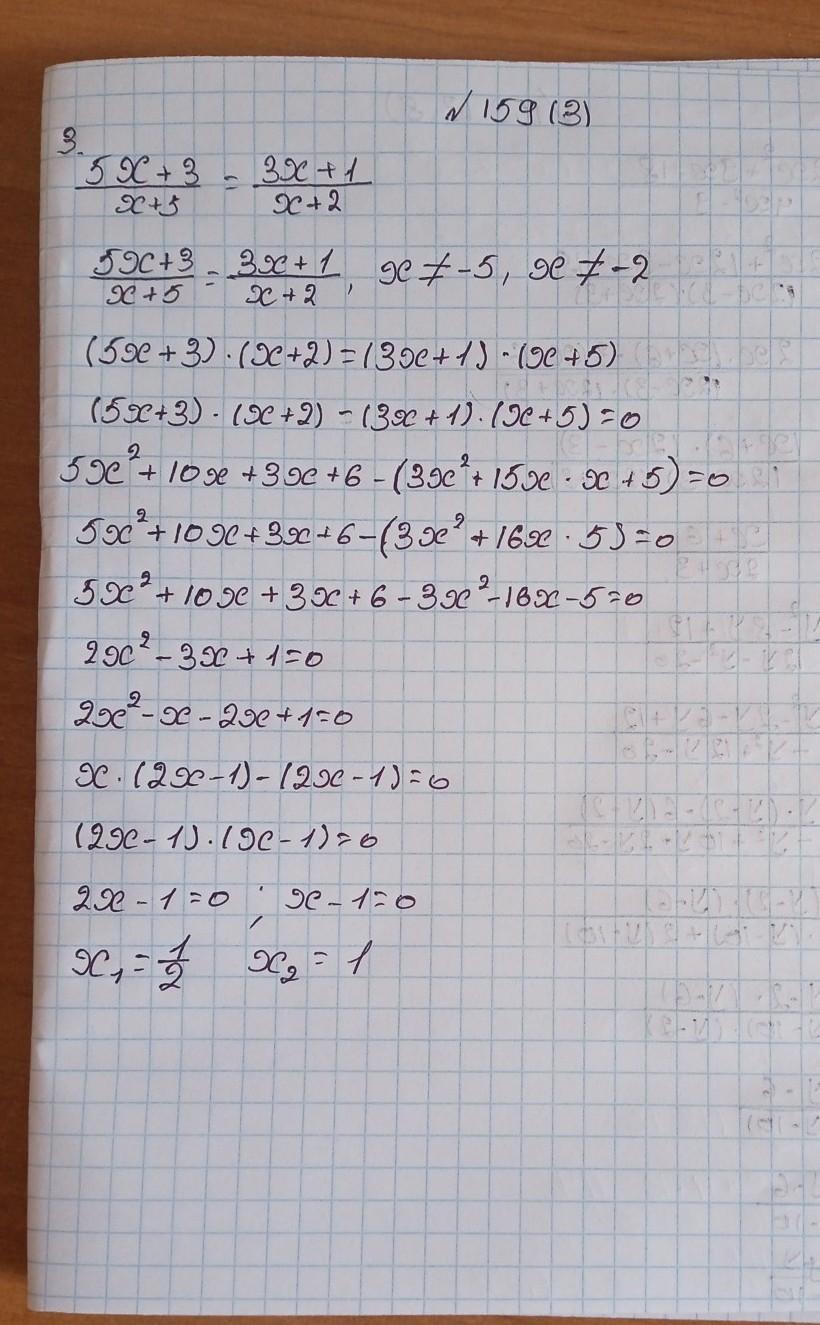 № 159 (3)
3.
5x + 3 / x+5 = 3x + 1 / x + 2
5x+3 / x+5 = 3x + 1 / x + 2, x ≠ -5, x ≠ -2
(5x + 3) · (x+2) = (3x+1) · (x + 5)
(5x+3) · (x+2) - (3x+1) · (x+5) = 0
5x² + 10x + 3x + 6 - (3x² + 15x · x + 5) = 0
5x² + 10x + 3x + 6 - (3x² + 16x · 5) = 0
5x² + 10x + 3x + 6 - 3x² - 16x - 5 = 0
2x² - 3x + 1 = 0
2x² - x - 2x + 1 = 0
x · (2x - 1) - (2x - 1) = 0
(2x - 1) · (x - 1) = 0
2x - 1 = 0 ; x - 1 = 0
x₁ = 1/2 x₂ = 1